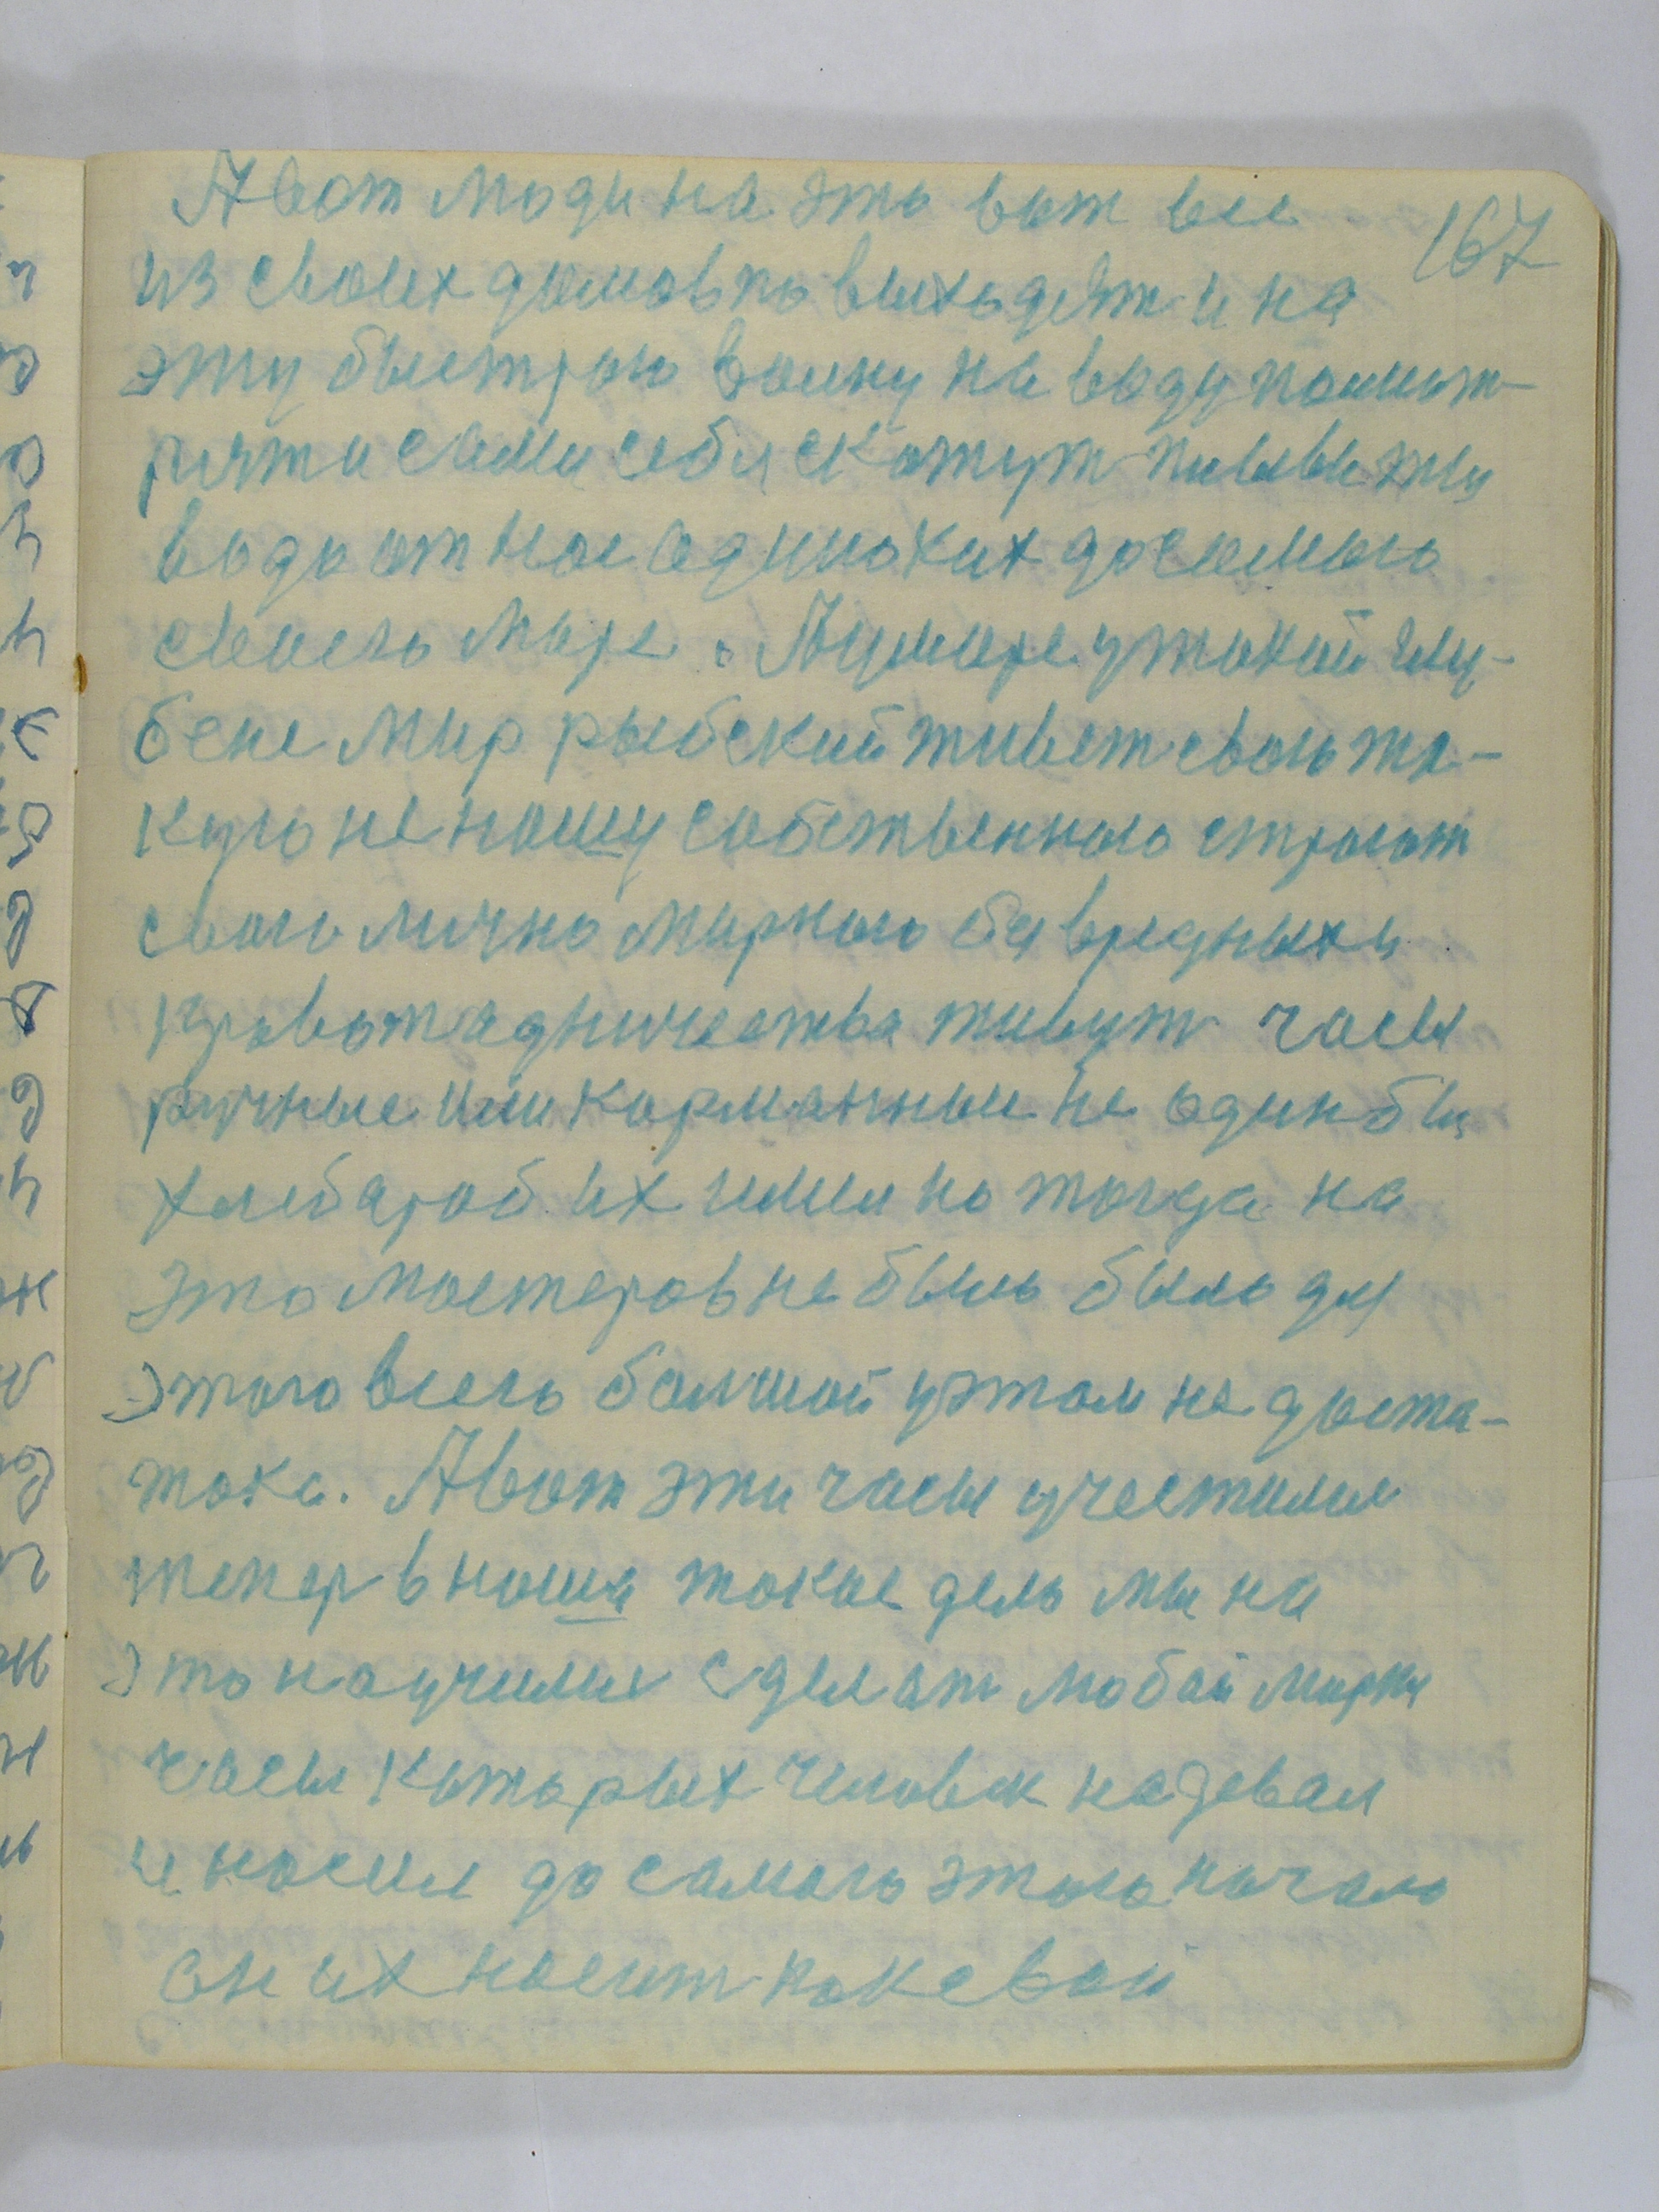 167
А вот люди на это вот все
из своих домов повыходят и на
эту быструю волну на воду помот-
рят и сами себя скажут плыви ты
вода от нас одиноких до самого
своего море. А у море у такой глу-
бене мир рыбский живет свою та-
кую не нашу собственного строют
свого лично мирного без вредных и
кровотжадничества живут часы
ручные или карманные не один бы
хлебароб их имел но тогда на
это мастеров не было было для
этого всего балшой у этом не доста-
тока. А вот эти часы участились
тепер в наша такое дело мы на
это научились сделат любой марки
часы каторых человек надевал
и носил до самого этого начало
он их носит